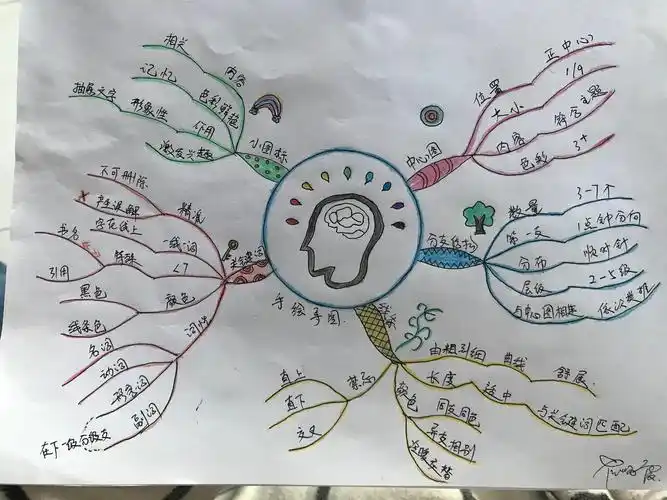 手绘导图
中心图
位置
正中心
大小
1/9
内容
符合主题
色彩
3+
分支结构
数量
3-7个
第一支
1点钟方向
分布
顺时针
层级
2-5级
与中心图相连
线条
由粗到细
曲线
舒展
长度
适中
与关键词匹配
颜色
同支同色
异支相别
冷暖交替
禁忌
直上
直下
交叉
关键词
精准
不可删除
歧误解
一线一词
字在线上
特殊
<7
书名
引用
颜色
黑色
线条色
词性
名词
动词
形容词
副词
在下一级分级支
小图标
内容
相关
记忆
色彩鲜艳
作用
形象性
抽象文字
激发兴趣